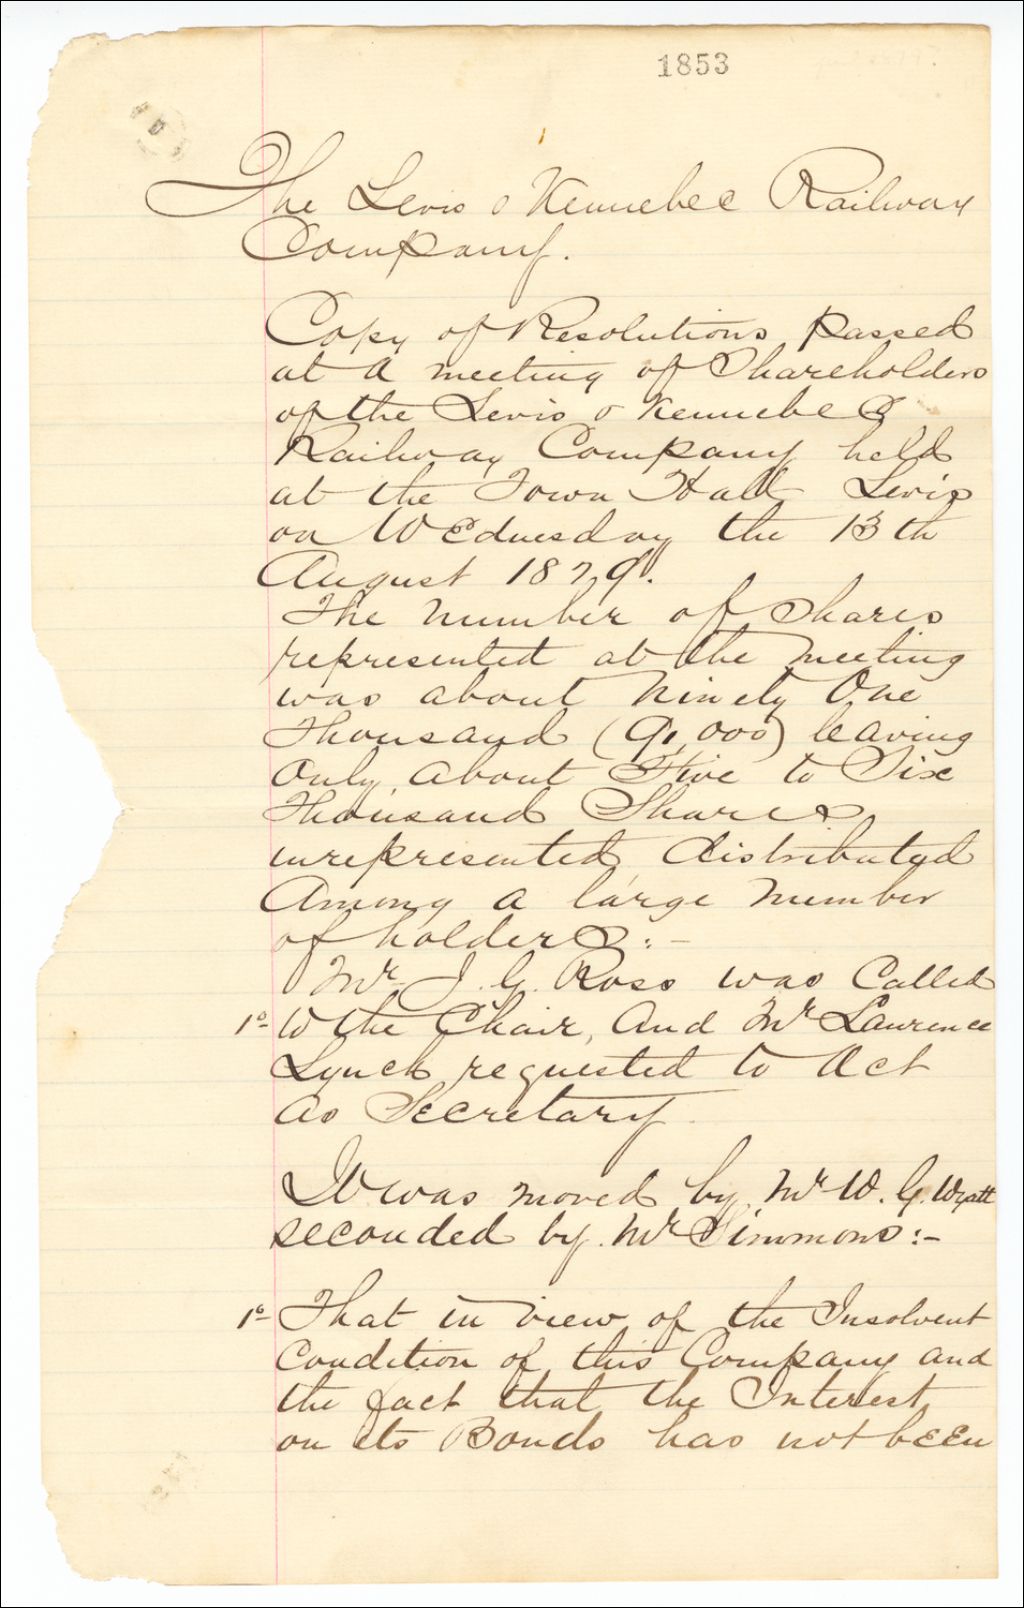 1853
The Levis & Kennebec Railway
Company.
Copy of Resolutions passed
at a meeting of Shareholders
of the Levis & Kennebec
Railway Company held
at the Town Hall Levis
on Wednesday the 13th
August 1879.
The number of shares
represented at the meeting
was about Ninety One
Thousand (91,000) leaving
only about Five to Six
Thousand Shares
unrepresented distributed
Among a large number
of holders:-
Mr J. G. Ross was Called
1o to the Chair, And Mr Lawrence
Lynch requested to Act
as Secretary
It was moved by Mr W. G. Wyatt
seconded by Mr Simmons:-
1o That in view of the Insolvent
Condition of this Company and
the fact that the Interest
on its Bonds has not been